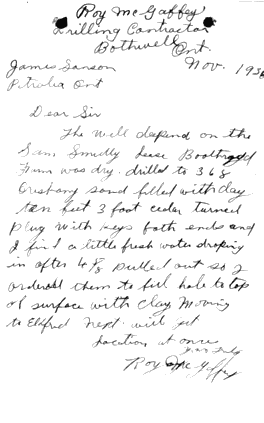 Roy McGaffey
Drilling Contractor
Bothwell Ont.
Nov. 193
James
Petrolia Ont
Dear Sir
The well depend on the
Lease
Farm was dry. drilled to 368
sand filled with clay
ten feet 3 foot ceder turned
plug with keps both ends and
I find a little fresh water droping
in after 4 7/8 pulled out so I
orderd them to fill hole to top
of surface with clay, Moving
to Ekfrid next. will get
location at once
Yours Truly
Roy McGaffey